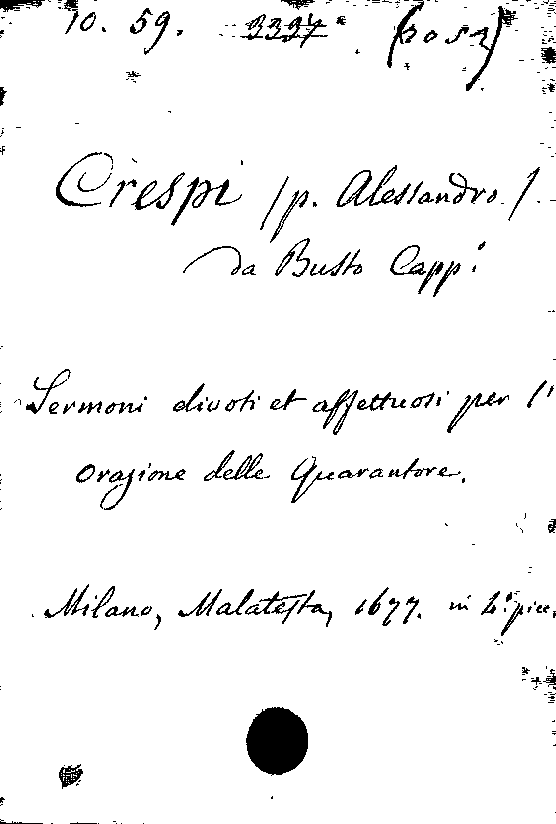 10. 59. 3397
Crespi /p. Alessandro/
da Busto Capp.º
Sermoni divoti et affettuosi per l'
Orazione delle Quarantore.
Milano, Malatesta, 1677. in 4.º picc.